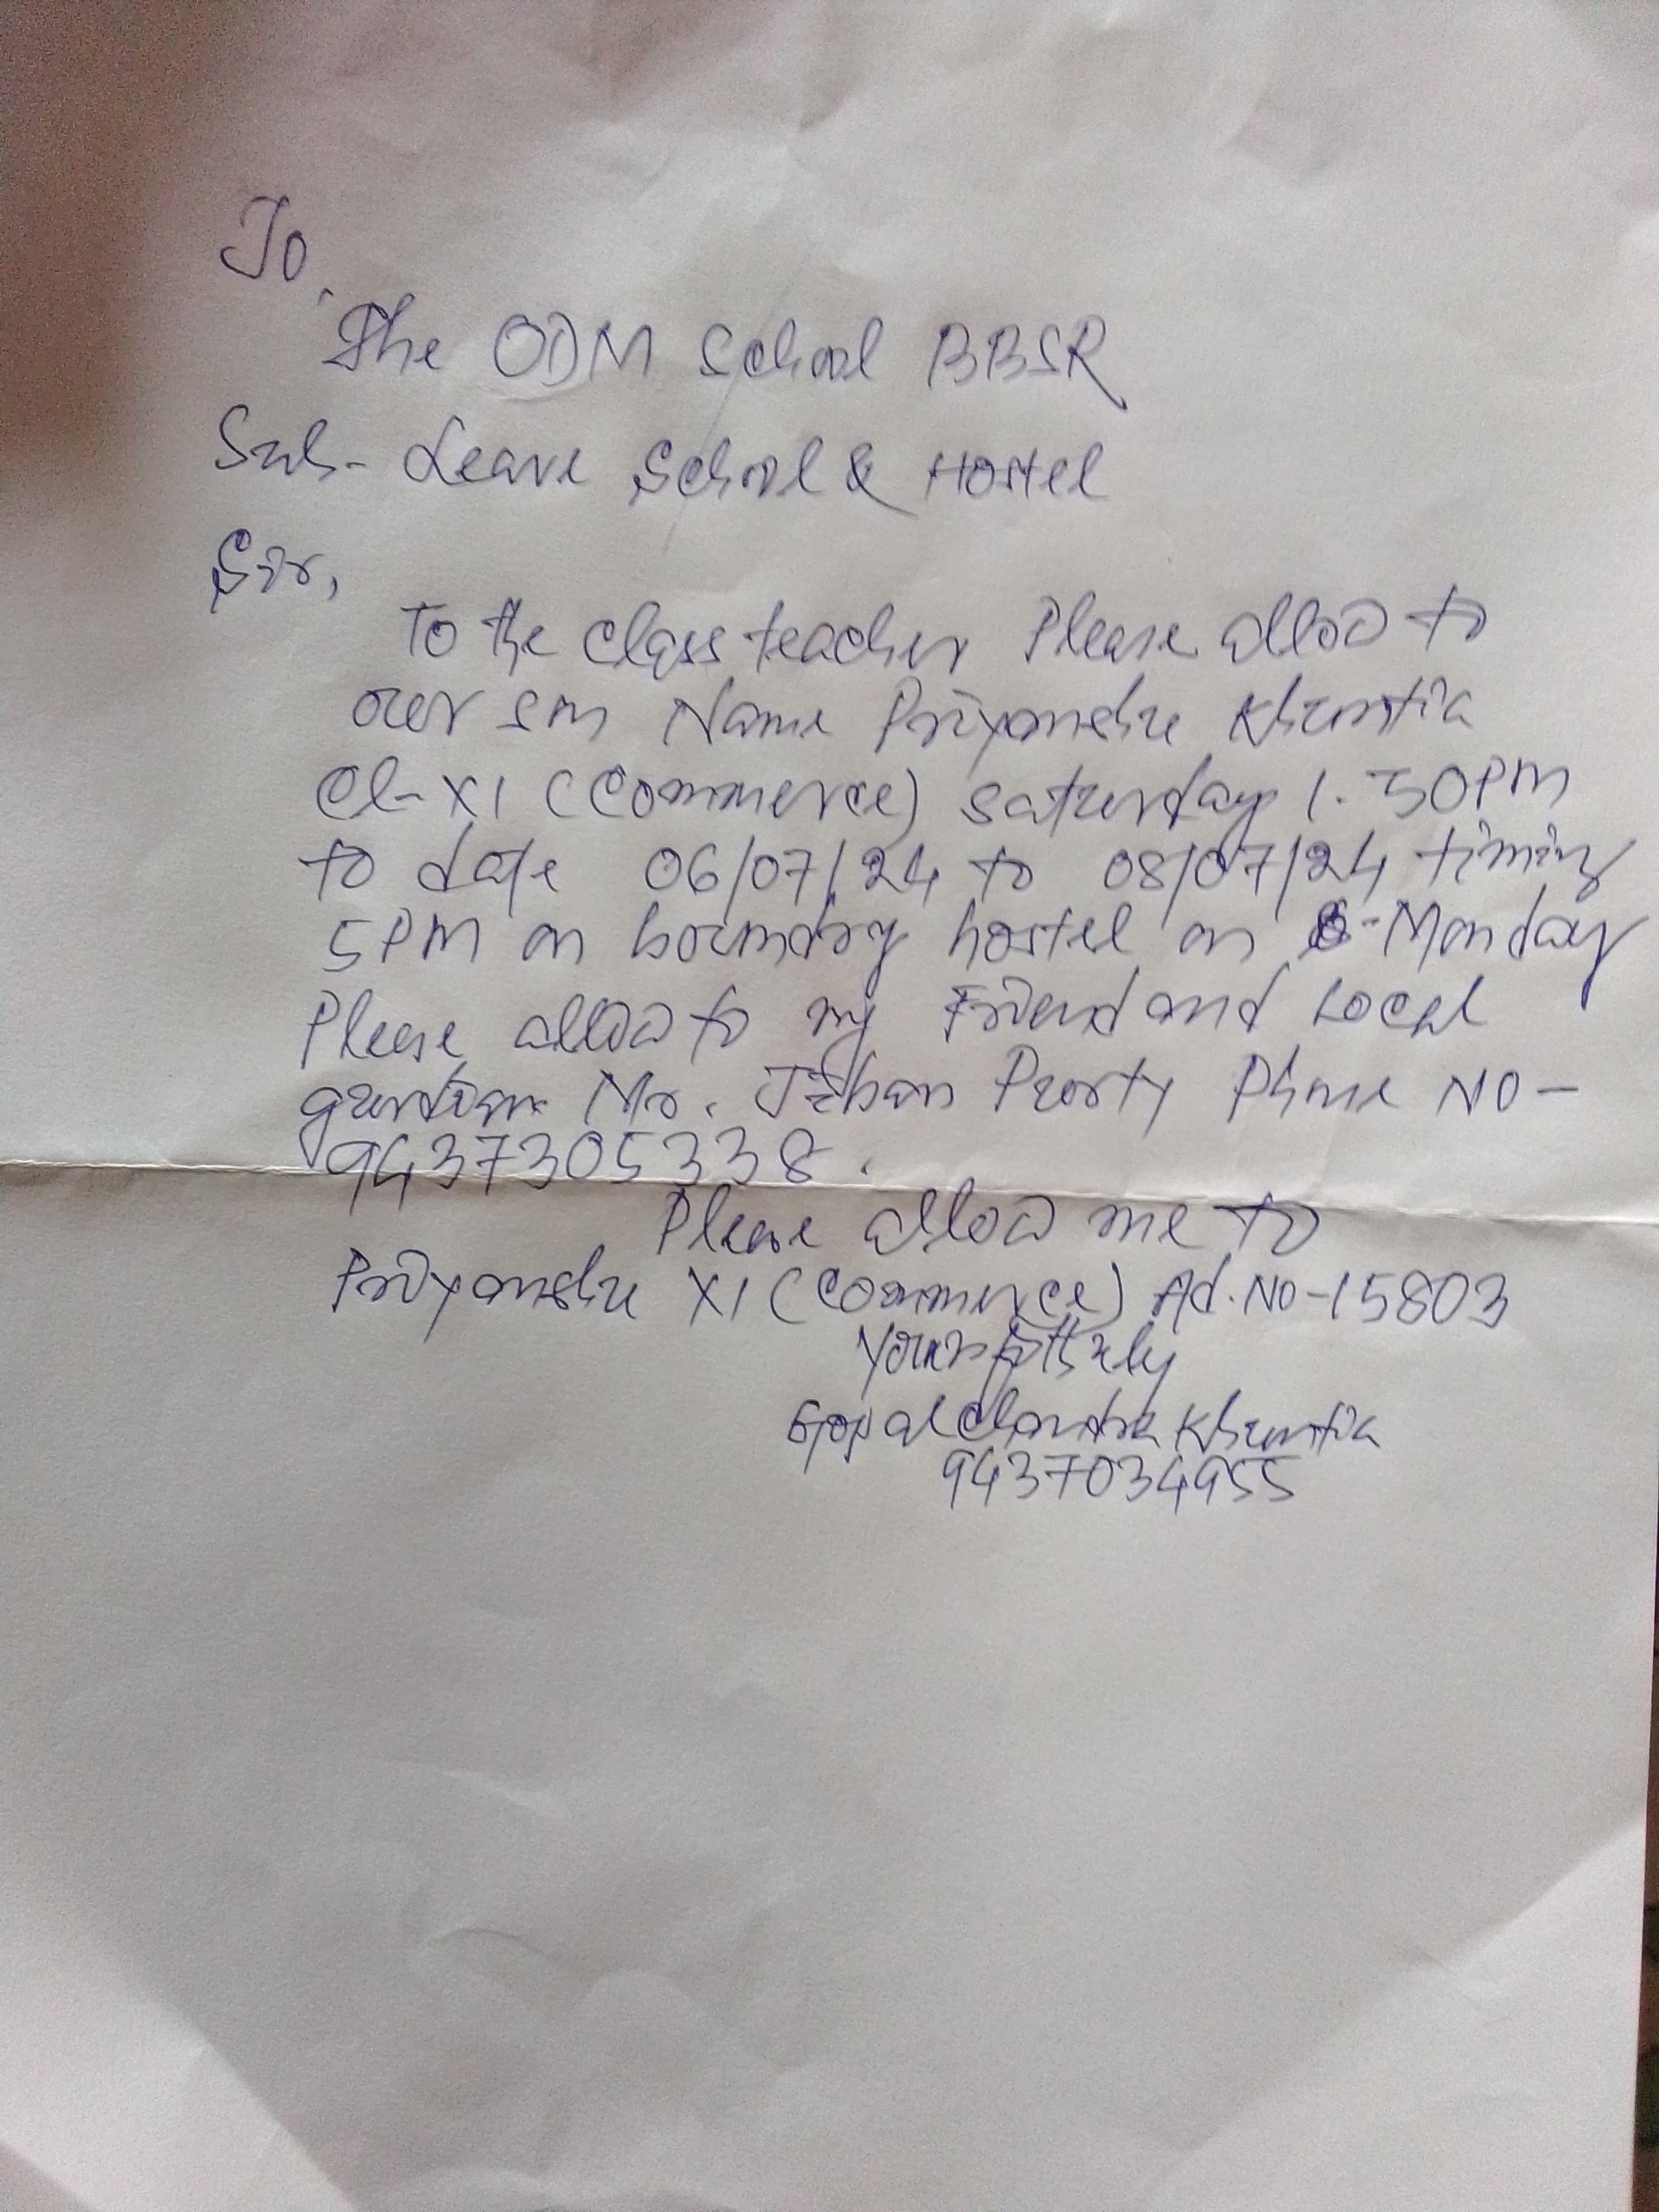 To,
The ODM School BBSR
Sub- Leave School & Hostel
Sir,
To the class teacher Please allow to
our son Name Priyanshu Khuntia
Cl- XI (Commerce) Saturday 1.30PM
to date 06/07/24 to 08/07/24 timing
5PM on hostel on Monday
Please allow to my Friend and Local
Mr. Phone NO-
9437305338.
Please allow me to
Priyanshu XI (Commerce) Ad.No-15803
Yours
Gopal Chandra Khuntia
9437034955